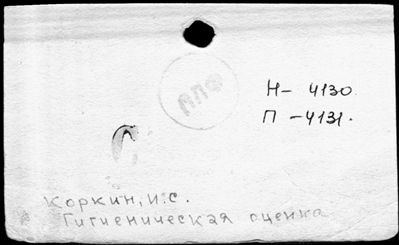 Н- 4130
П -4131.
ППФ
Коркин, И.С.
Гигиеническая оценка